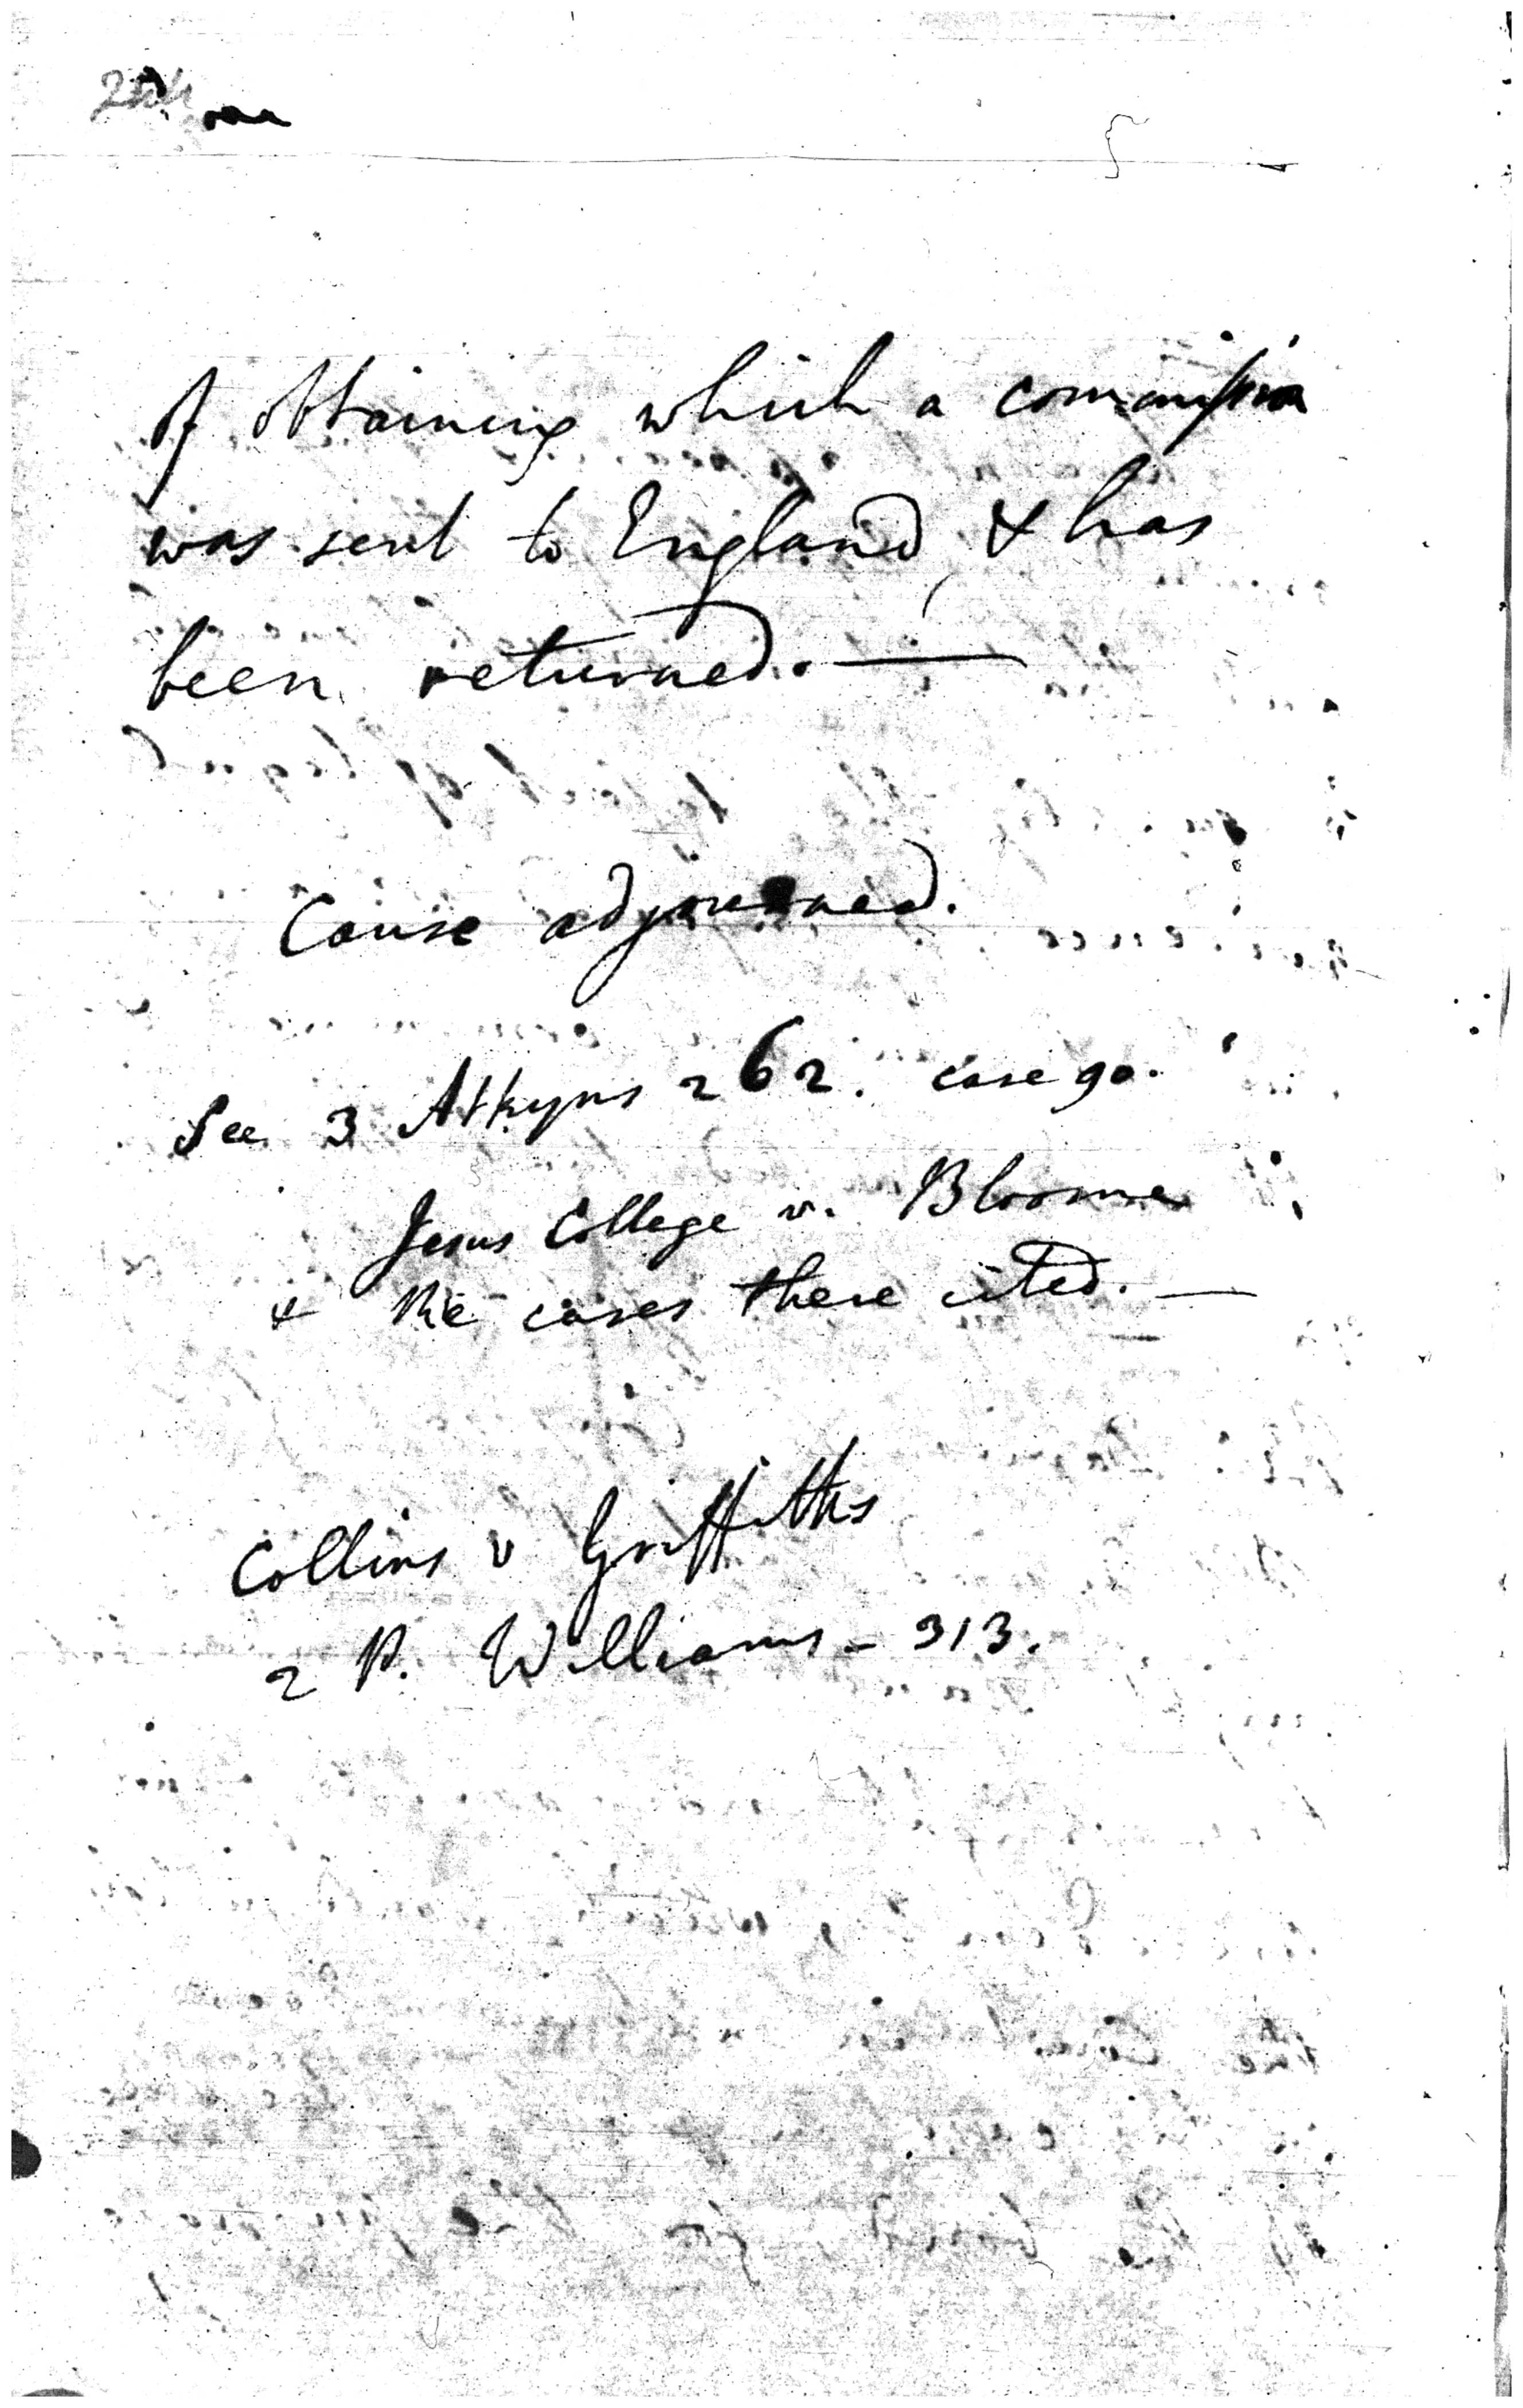 of obtaining which a commission
was sent to England, & has
been returned. —
Cause adjourned.
See 3 Atkyns 262. case 90.
Jesus College v. Bloome
& the cases there cited. —
Collins v Griffiths
2 P. Williams - 313.